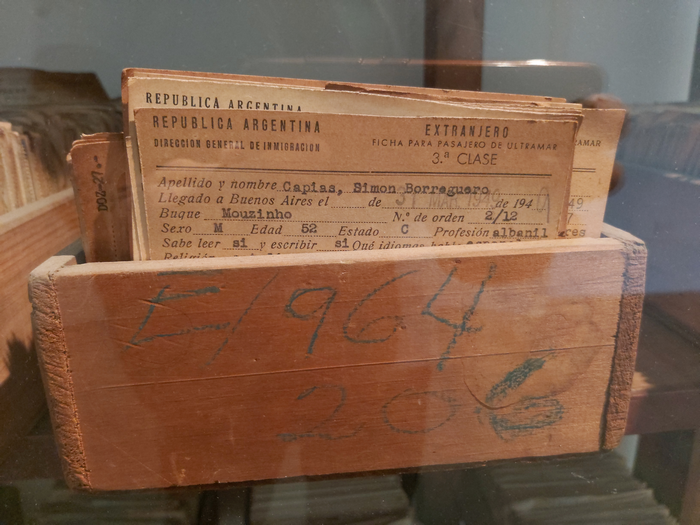 REPUBLICA ARGENTINA
REPUBLICA ARGENTINA EXTRANJERO
DIRECCION GENERAL DE INMIGRACION FICHA PARA PASAJERO DE ULTRAMAR
3.ª CLASE
Apellido y nombre Capias, Simon Borreguero
Llegado a Buenos Aires el de 31 MAR 1949 de 194
Buque Mouzinho N.º de orden 2/12
Sexo M Edad 52 Estado C Profesión albanil
Sabe leer si y escribir si Qué idiomas habla
E/964
206